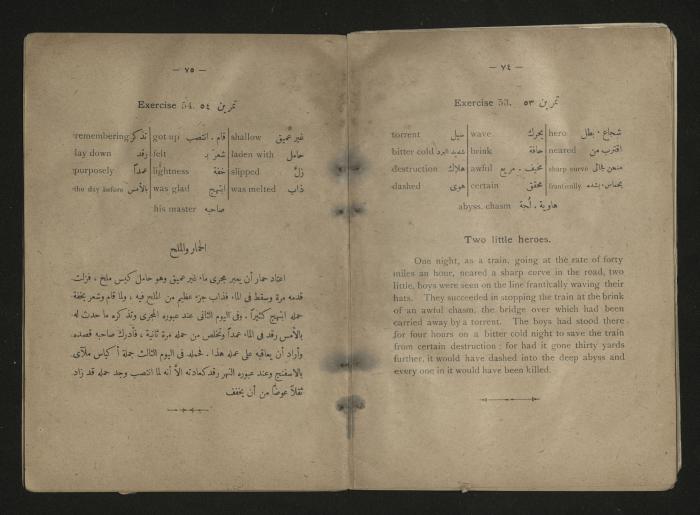 — ٧٤ —
Exercise 53. تمرين ٥٣
torrent سيل wave يحرك hero شجاع . بطل
bitter cold شديد البرد brink حافة neared اقترب من
destruction هلاك awful مخيف . مريع sharp curve منحن
dashed هوى certain محقق frantically بحماس . بشدة
abyss. chasm هاوية . لجة
Two little heroes.
One night, as a train, going at the rate of forty
miles an hour, neared a sharp corve in the road, two
little, boys were seen on the line frantically waving their
hats. They succeeded in stopping the train at the brink
of an awful chasm, the bridge over which had been
carried away by a torrent. The boys had stood there
for four hours on a bitter cold night to save the train
from certain destruction : for had it gone thirty yards
further, it would have dashed into the deep abyss and
every one in it would have been killed.
— ٧٥ —
Exercise 54. تمرين ٥٤
remembering تذكر got up قام . انتصب shallow غير عميق
lay down رقد felt شعر بـ laden with حامل
purposely عمداً lightness خفة slipped زلّ
the day before بالأمس was glad ابتهج was melted ذاب
his master صاحبه
الحمار والملح
اعتاد حمار أن يعبر مجرى ماء غير عميق وهو حامل كيس ملح ، فزلت
قدمه مرة وسقط فى الماء فذاب جزء عظيم من الملح فيه ، ولما قام وشعر بخفة
حمله ابتهج كثيراً . وفى اليوم الثانى عند عبوره المجرى وتذكره ما حدث له
بالأمس رقد فى الماء عمداً وتخلص من حمله مرة ثانية ، فأدرك صاحبه قصده
وأراد أن يعاقبه على عمله هذا . فحمله فى اليوم الثالث جملة أكياس ملآى
بالاسفنج وعند عبوره النهر رقد كعادته الاّ أنه لما انتصب وجد حمله قد زاد
ثقلاً عوضاً من أن يخفف